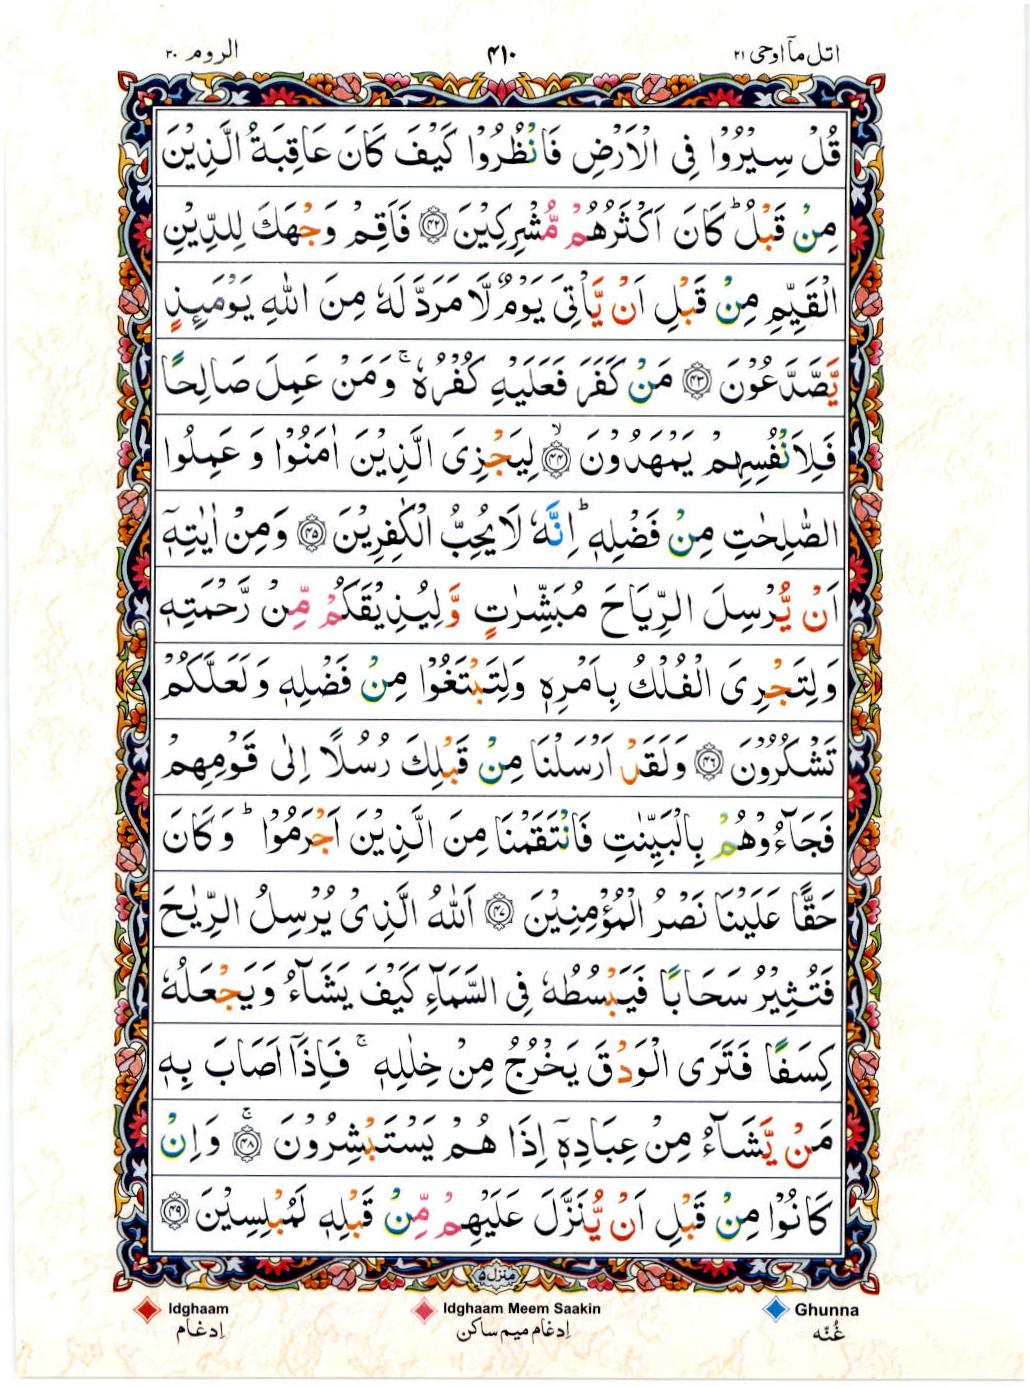 الروم ۳۰
۴۱۰
اتل ماۤ اوحی ۲۱
قُلْ سِيْرُوْا فِى الْاَرْضِ فَانْظُرُوْا كَيْفَ كَانَ عَاقِبَةُ الَّذِيْنَ
مِنْ قَبْلُ ؕ كَانَ اَكْثَرُهُمْ مُّشْرِكِيْنَ ﴿۴۲﴾ فَاَقِمْ وَجْهَكَ لِلدِّيْنِ
الْقَيِّمِ مِنْ قَبْلِ اَنْ يَّاْتِىَ يَوْمٌ لَّا مَرَدَّ لَهٗ مِنَ اللّٰهِ يَوْمَئِذٍ
يَّصَّدَّعُوْنَ ﴿۴۳﴾ مَنْ كَفَرَ فَعَلَيْهِ كُفْرُهٗ ۚ وَمَنْ عَمِلَ صَالِحًا
فَلِاَنْفُسِهِمْ يَمْهَدُوْنَ ۙ﴿۴۴﴾ لِيَجْزِىَ الَّذِيْنَ اٰمَنُوْا وَ عَمِلُوا
الصّٰلِحٰتِ مِنْ فَضْلِهٖ ؕ اِنَّهٗ لَا يُحِبُّ الْكٰفِرِيْنَ ﴿۴۵﴾ وَمِنْ اٰيٰتِهٖۤ
اَنْ يُّرْسِلَ الرِّيَاحَ مُبَشِّرٰتٍ وَّلِيُذِيْقَكُمْ مِّنْ رَّحْمَتِهٖ
وَلِتَجْرِىَ الْفُلْكُ بِاَمْرِهٖ وَلِتَبْتَغُوْا مِنْ فَضْلِهٖ وَلَعَلَّكُمْ
تَشْكُرُوْنَ ﴿۴۶﴾ وَلَقَدْ اَرْسَلْنَا مِنْ قَبْلِكَ رُسُلًا اِلٰى قَوْمِهِمْ
فَجَآءُوْهُمْ بِالْبَيِّنٰتِ فَانْتَقَمْنَا مِنَ الَّذِيْنَ اَجْرَمُوْا ؕ وَكَانَ
حَقًّا عَلَيْنَا نَصْرُ الْمُؤْمِنِيْنَ ﴿۴۷﴾ اَللّٰهُ الَّذِىْ يُرْسِلُ الرِّيٰحَ
فَتُثِيْرُ سَحَابًا فَيَبْسُطُهٗ فِى السَّمَآءِ كَيْفَ يَشَآءُ وَيَجْعَلُهٗ
كِسَفًا فَتَرَى الْوَدْقَ يَخْرُجُ مِنْ خِلٰلِهٖ ۚ فَاِذَاۤ اَصَابَ بِهٖ
مَنْ يَّشَآءُ مِنْ عِبَادِهٖۤ اِذَا هُمْ يَسْتَبْشِرُوْنَ ۚ﴿۴۸﴾ وَاِنْ
كَانُوْا مِنْ قَبْلِ اَنْ يُّنَزَّلَ عَلَيْهِمْ مِّنْ قَبْلِهٖ لَمُبْلِسِيْنَ ﴿۴۹﴾
منزل ۵
Idghaam
Idghaam Meem Saakin
Ghunna
اِدغام
اِدغام میم ساکن
غُنّه